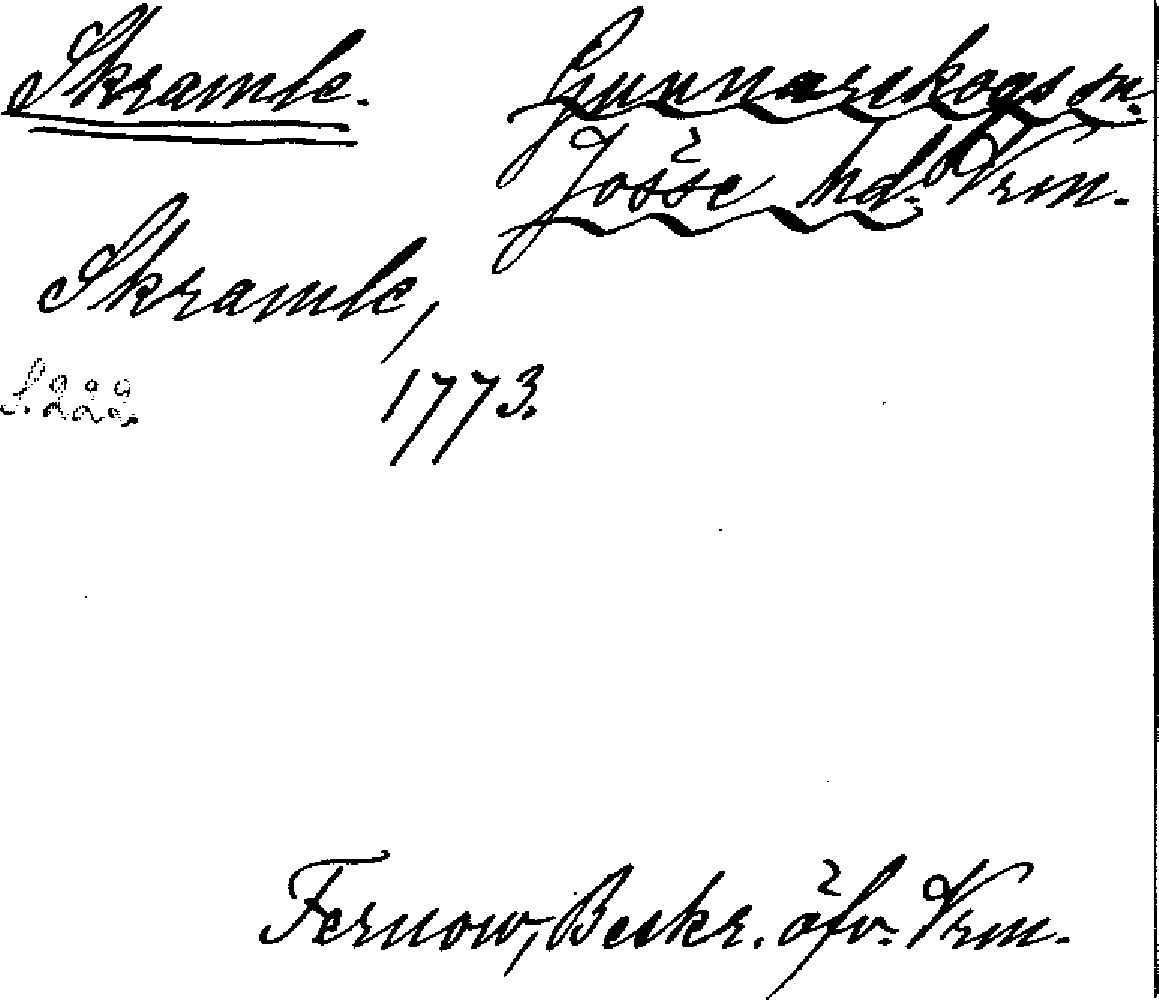 Skramle.
Gunnarskogs sn.
Jösse hd. Vrm.
Skramle,
1773.
S. 222.
Fernow, Beskr. öfv. Vrm.